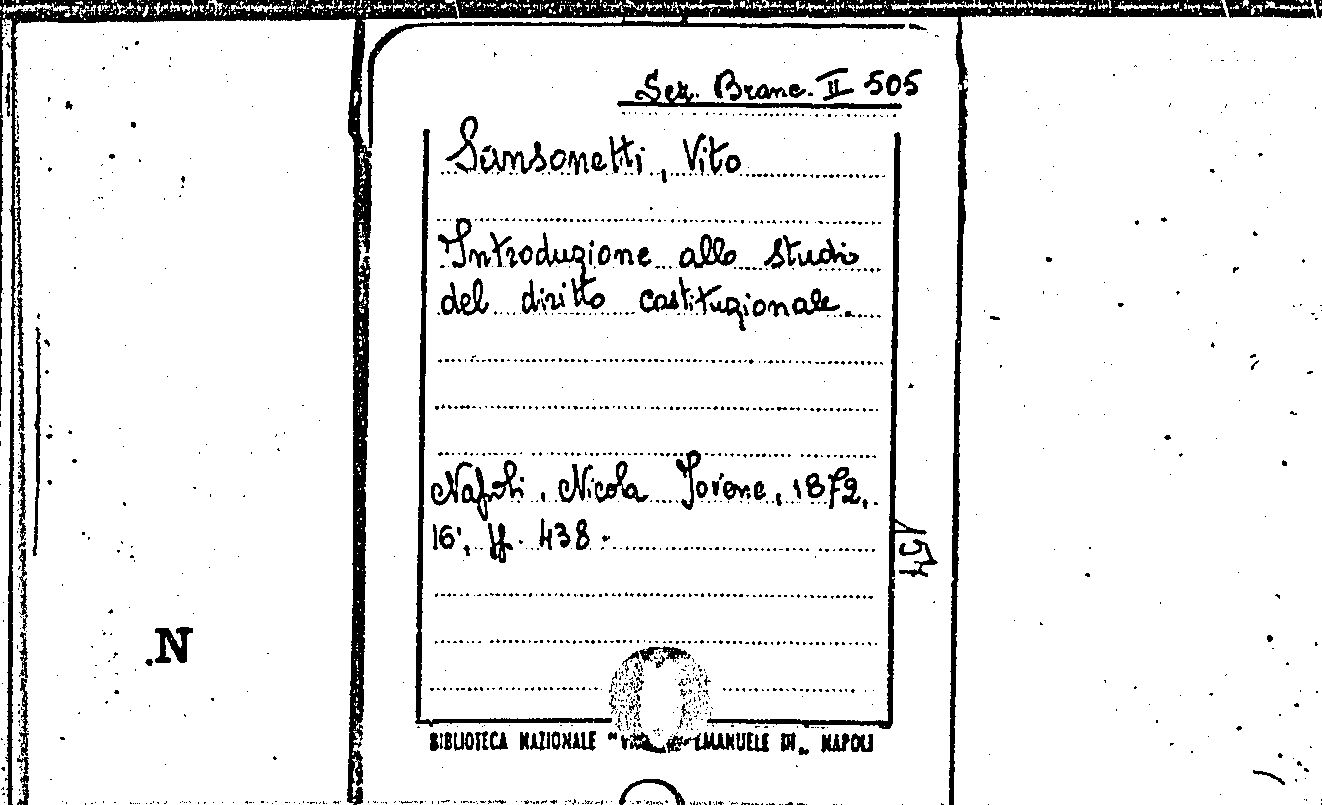 Sez. Branc. II 505
Sansonetti, Vito
Introduzione allo studio
del diritto costituzionale.
Napoli, Nicola Jovene, 1872,
16°, pp. 438.
N
BIBLIOTECA NAZIONALE " EMANUELE III„ NAPOLI